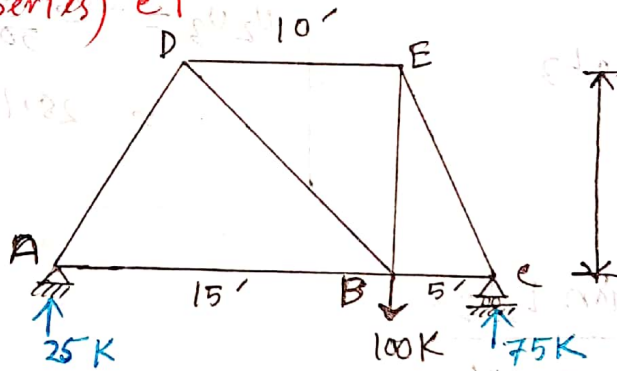 series) et
10′
D
E
A
15′
B
5′
C
25K
100K
75K